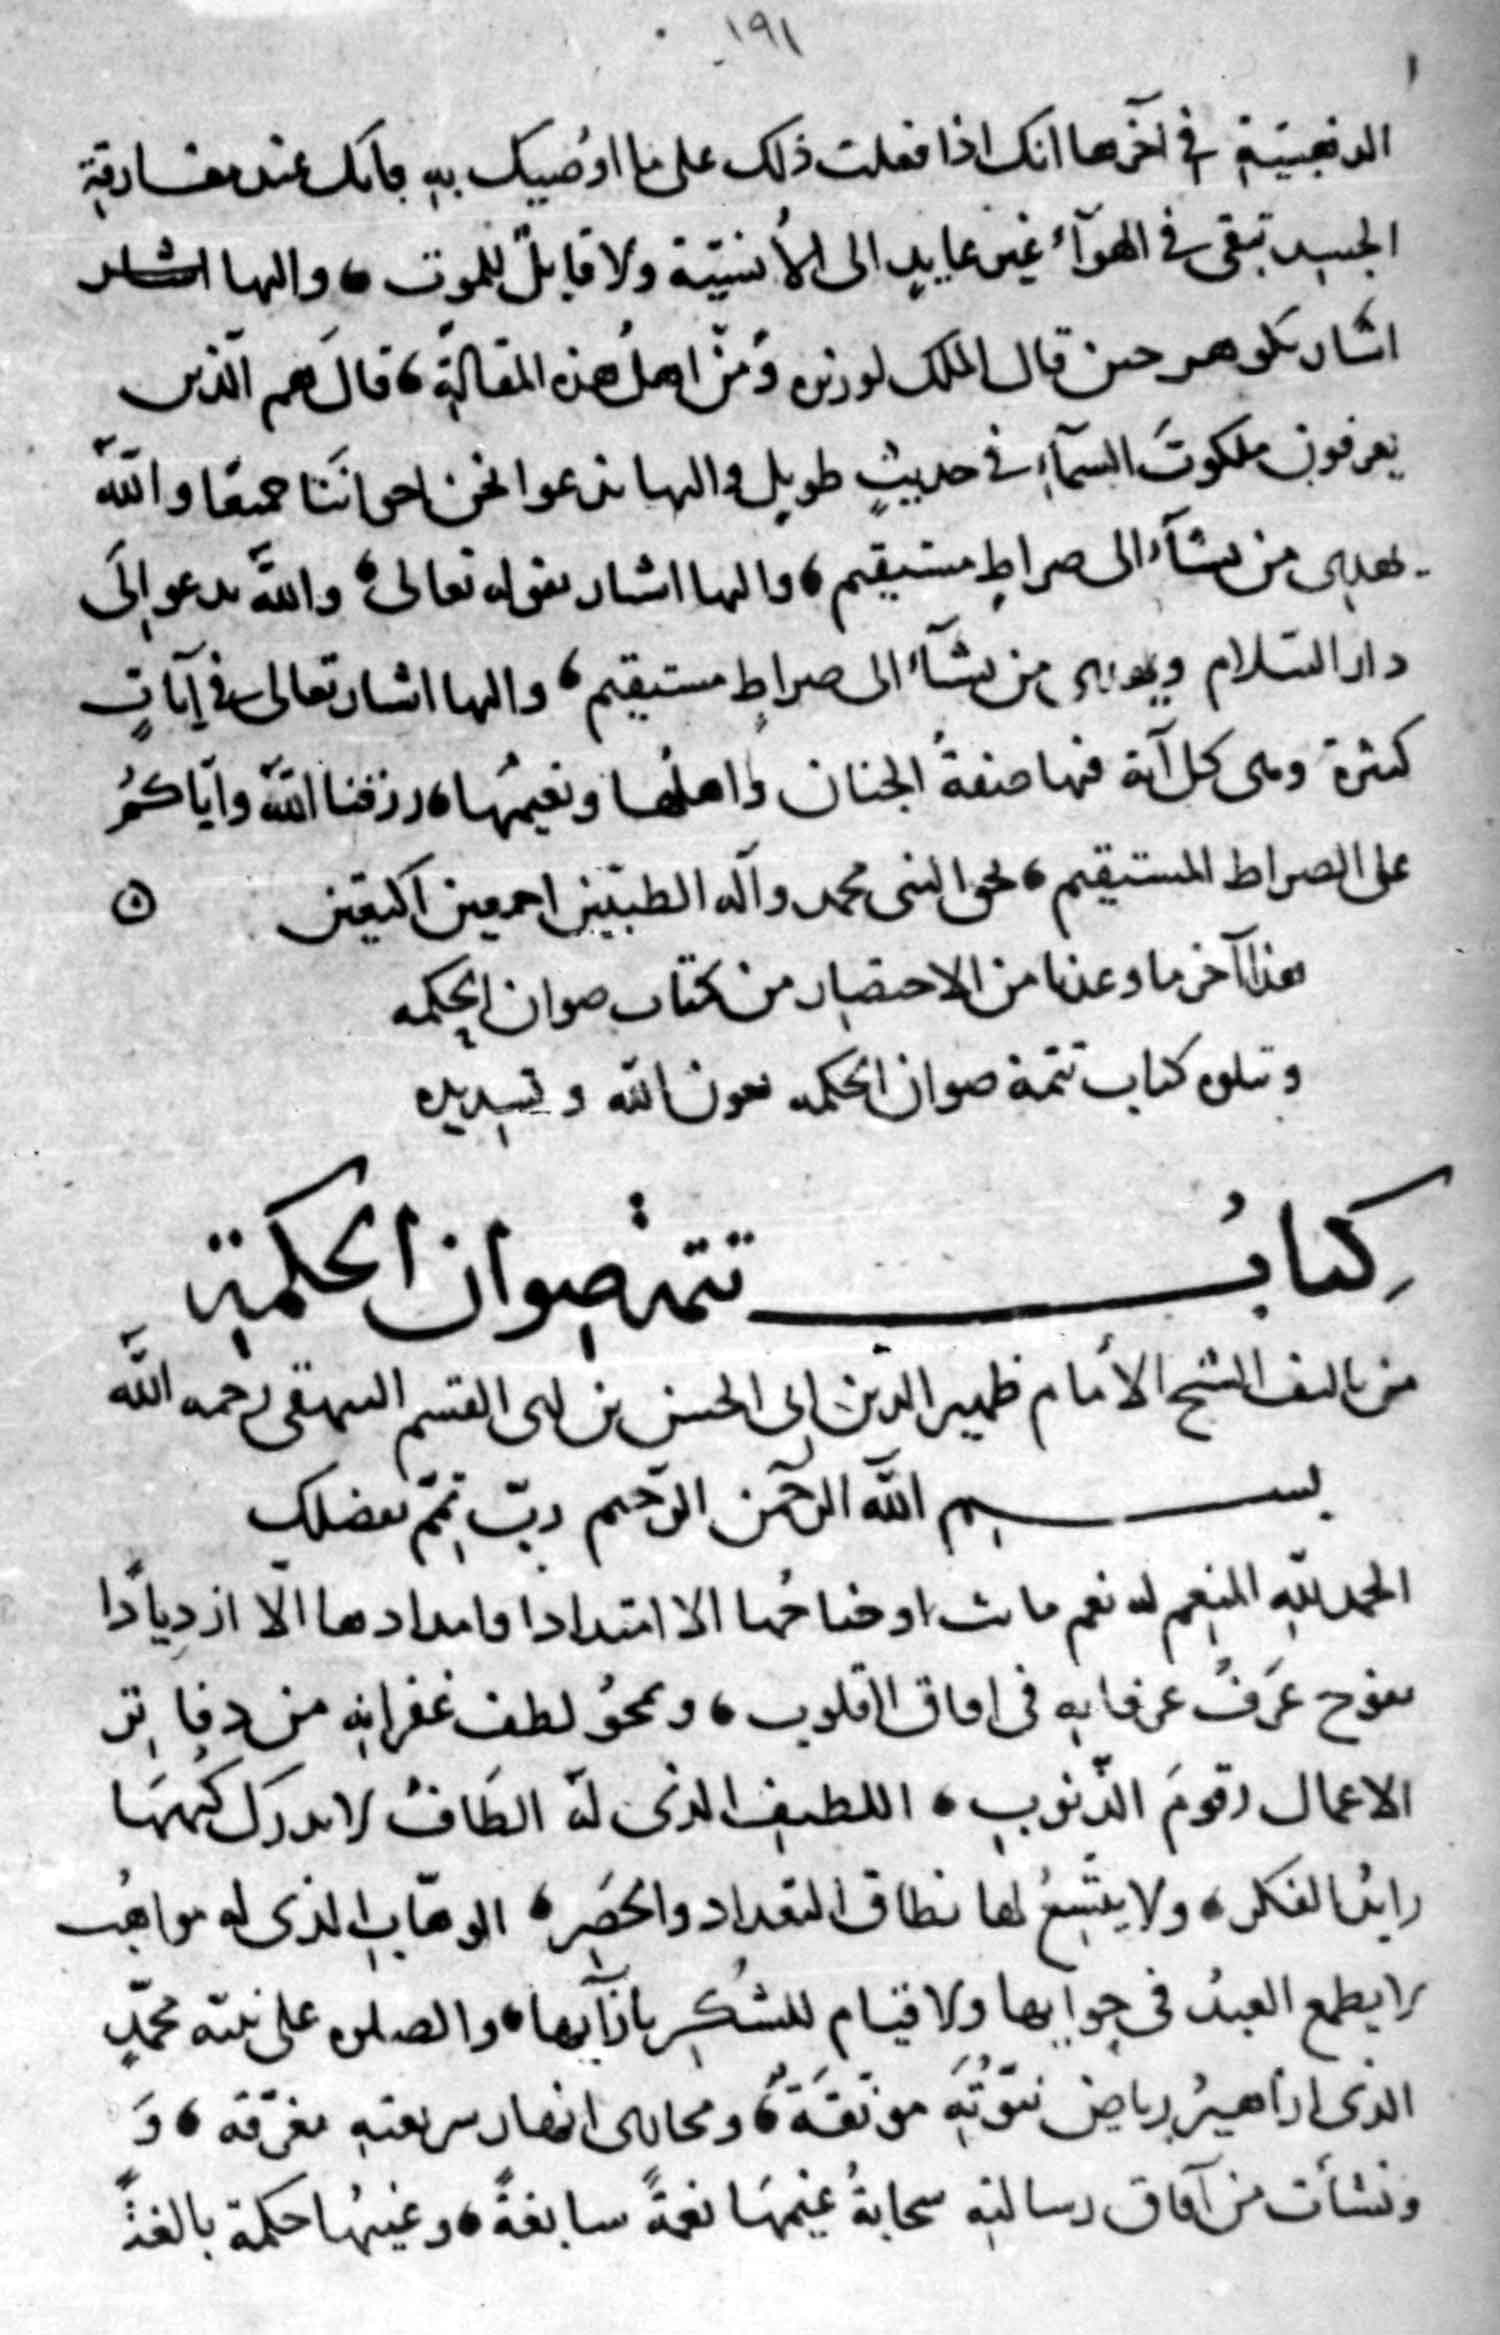 ١٩١
الذهبية في آخرها انك اذا فعلت ذلك على ما اوصيك به فانك عند مفارقة
الجسد تبقى في الهوآء غير عايد الى الأنسيّة ولا قابل للموت، واليها اشار
اشار بلوهر حين قال الملك لوزيره ومن اهل هذه المقالة، قال هم الّذين
يعرفون ملكوت السمآء في حديثٍ طويل واليها ندعوا نحن اخواننا جميعًا واللّه
يهدى من يشآء الى صراطٍ مستقيم، واليها اشار بقوله تعالى، واللّه يدعو الَى
دار السّلام ويهدى من يشآء الى صراطٍ مستقيم، واليها اشار تعالى في آيات
كثيرة وهى كل آية فيها صفةُ الجنان واهلُها ونعيمُها، رزقنا اللّه وايّاكمُ
على الصراط المستقيم، بحق النبى محمد وآله الطيّبين اجمعين
هذا آخر ما وعدنا من الاختصار من كتاب صوان الحكمه
وتتلوه كتاب تتمة صوان الحكمه بعون اللّه وتسديده
كِتابُ تتمة صوان الحكمة
من تاليف الشيخ الأمام ظهير الدين ابى الحسن بن ابى القسم البيهقى رحمه اللّه
بسم اللّه الرحمن الرّحيم ربّ تمّم بفضلك
الحمد للّه المنعم له نعم الا امتدادا وامدادها الّا ازدِيادًا
يفوح عَرفُ عرفانه فى افاق القلوب، ويمحوُ لطف غفرانه من دفاتر
الاعمال رقومَ الذّنوب، اللطيف الذى لهّ الطَافٌ لا يدرك كُنهَهَا
رايدُ الفكر، ولا يتّسِعُ لها نطاق التعداد والحَصَر، الوهّاب الذى له مواهبُ
لا يطمع العبدُ فى جوابها ولا قيام للشُكِر بازآيها، والصلوه على نبيّه محمّدٍ
الذى ازاهيرُ رياض نبوّته مونقَةٌ، ومجارى انهار شريعته مغرّقه، وَ
ونشأت من آفاق رسالته سحابةُ غيمهَا نعمةً سابغةً، وغيثُها حكمة بالغةً